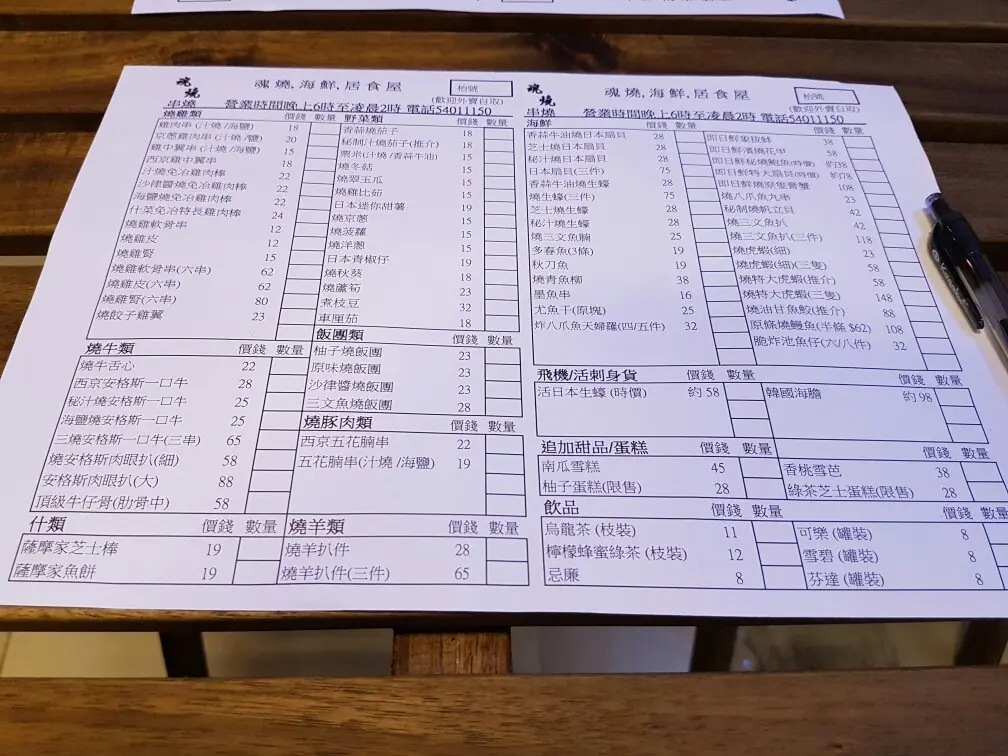 魂燒
魂燒,海鮮,居食屋
枱號
(歡迎外賣自取)
串燒 營業時間晚上6時至凌晨2時 電話54011150
燒雞類 價錢 數量
雞肉串(汁燒/海鹽) 18
京蔥雞肉串(汁燒/鹽) 20
雞中翼串(汁燒/海鹽) 15
西京雞中翼串 18
汁燒免冶雞肉棒 22
沙律醬燒免冶雞肉棒 22
海鹽燒免冶雞肉棒 22
什菜免冶特長雞肉棒 24
燒雞軟骨串 12
燒雞皮 12
燒雞腎 15
燒雞軟骨串(六串) 62
燒雞皮(六串) 62
燒雞腎(六串) 80
燒餃子雞翼 23
野菜類 價錢 數量
香蒜燒茄子 18
秘制汁燒茄子(推介) 18
粟米(汁燒/香蒜牛油) 15
燒冬菇 15
燒翠玉瓜 15
燒雞比茹 15
日本迷你甜薯 19
燒京蔥 15
燒菠蘿 15
燒洋蔥 15
日本青椒仔 19
燒秋葵 18
燒蘆筍 23
煮枝豆 32
車厘茄 18
燒牛類 價錢 數量
燒牛舌心 22
西京安格斯一口牛 28
秘汁燒安格斯一口牛 25
海鹽燒安格斯一口牛 25
三燒安格斯一口牛(三串) 65
燒安格斯肉眼扒(細) 58
安格斯肉眼扒(大) 88
頂級牛仔骨(肋骨中) 58
飯團類 價錢 數量
柚子燒飯團 23
原味燒飯團 23
沙律醬燒飯團 23
三文魚燒飯團 28
燒豚肉類
西京五花腩串 22
五花腩串(汁燒/海鹽) 19
什類 價錢 數量
薩摩家芝士棒 19
薩摩家魚餅 19
燒羊類 價錢 數量
燒羊扒件 28
燒羊扒件(三件) 65
魂燒
魂燒,海鮮,居食屋
枱號
(歡迎外賣自取)
串燒 營業時間晚上6時至凌晨2時 電話54011150
海鮮 價錢 數量 價錢 數量
香蒜牛油燒日本扇貝 28
芝士燒日本扇貝 28
秘汁燒日本扇貝 28
日本扇貝(三件) 75
香蒜牛油燒生蠔 28
燒生蠔(三件) 75
芝士燒生蠔 28
秘汁燒生蠔 28
燒三文魚腩 25
多春魚(3條) 19
秋刀魚 19
燒青魚柳 38
墨魚串 16
尤魚干(原塊) 25
炸八爪魚天婦羅(四/五件) 32
即日鮮象拔蚌 38
即日鮮濱燒花甲 58
即日鮮秘燒鮑魚(時價) 約38
即日鮮特大扇貝(時價) 約78
即日鮮燒原隻膏蟹 108
燒八爪魚丸串 23
秘制燒帆立貝 42
燒三文魚扒 42
燒三文魚扒(三件) 118
燒虎蝦(細) 23
燒虎蝦(細)(三隻) 58
燒特大虎蝦(推介) 58
燒特大虎蝦(三隻) 148
燒油甘魚鮫(推介) 88
原條燒鰻魚(半條 $62) 108
脆炸池魚仔(六/八件) 32
飛機/活刺身貨 價錢 數量 價錢 數量
活日本生蠔 (時價) 約 58
韓國海膽 約 98
追加甜品/蛋糕 價錢 數量 價錢 數量
南瓜雪糕 45
柚子蛋糕(限售) 28
香桃雪芭 38
綠茶芝士蛋糕(限售) 28
飲品 價錢 數量 價錢 數量
烏龍茶 (枝裝) 11
檸檬蜂蜜綠茶 (枝裝) 12
忌廉 8
可樂 (罐裝) 8
雪碧 (罐裝) 8
芬達 (罐裝) 8